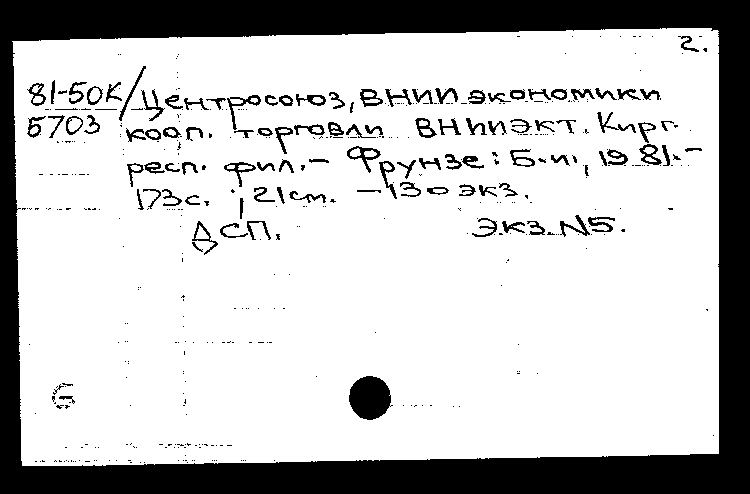 2.
81-50К/Центросоюз, ВНИИ экономики
5703 кооп. торговли ВНИИЭКТ. Кирг.
респ. фил. - Фрунзе: Б.и., 1981. -
173с.; 21см. - 130 экз.
ДСП. Экз. N5.